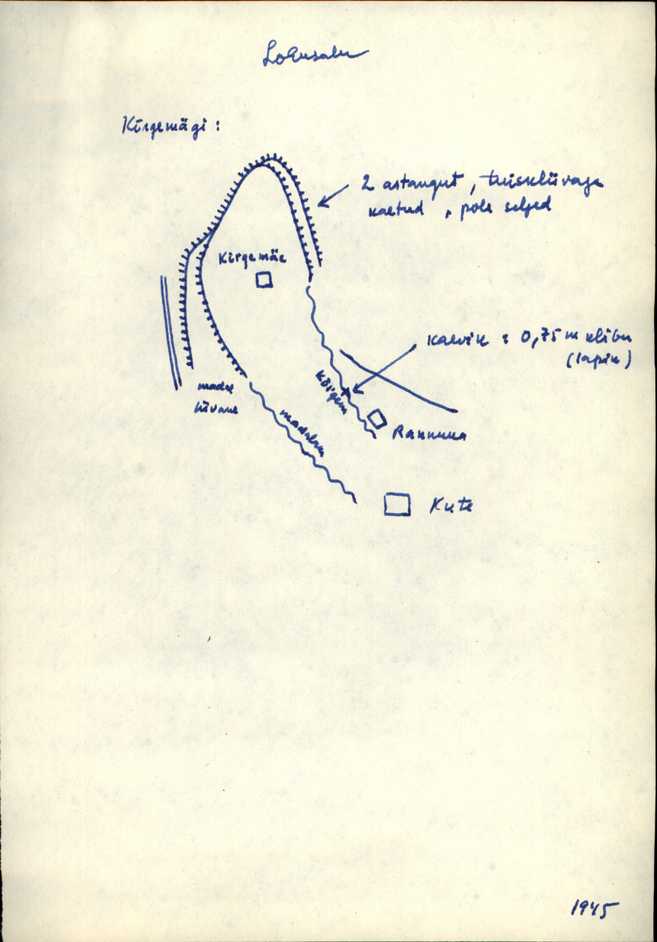 Lohusalu
Kirgemägi :
2 astangut, tuiskliivaga
kaetud, pole seljed
Kirgemäe
kaevik : 0,75 m klibu
(lapik)
kõrgem
madal
liivane
madalam
Rannuua
Kute
1945